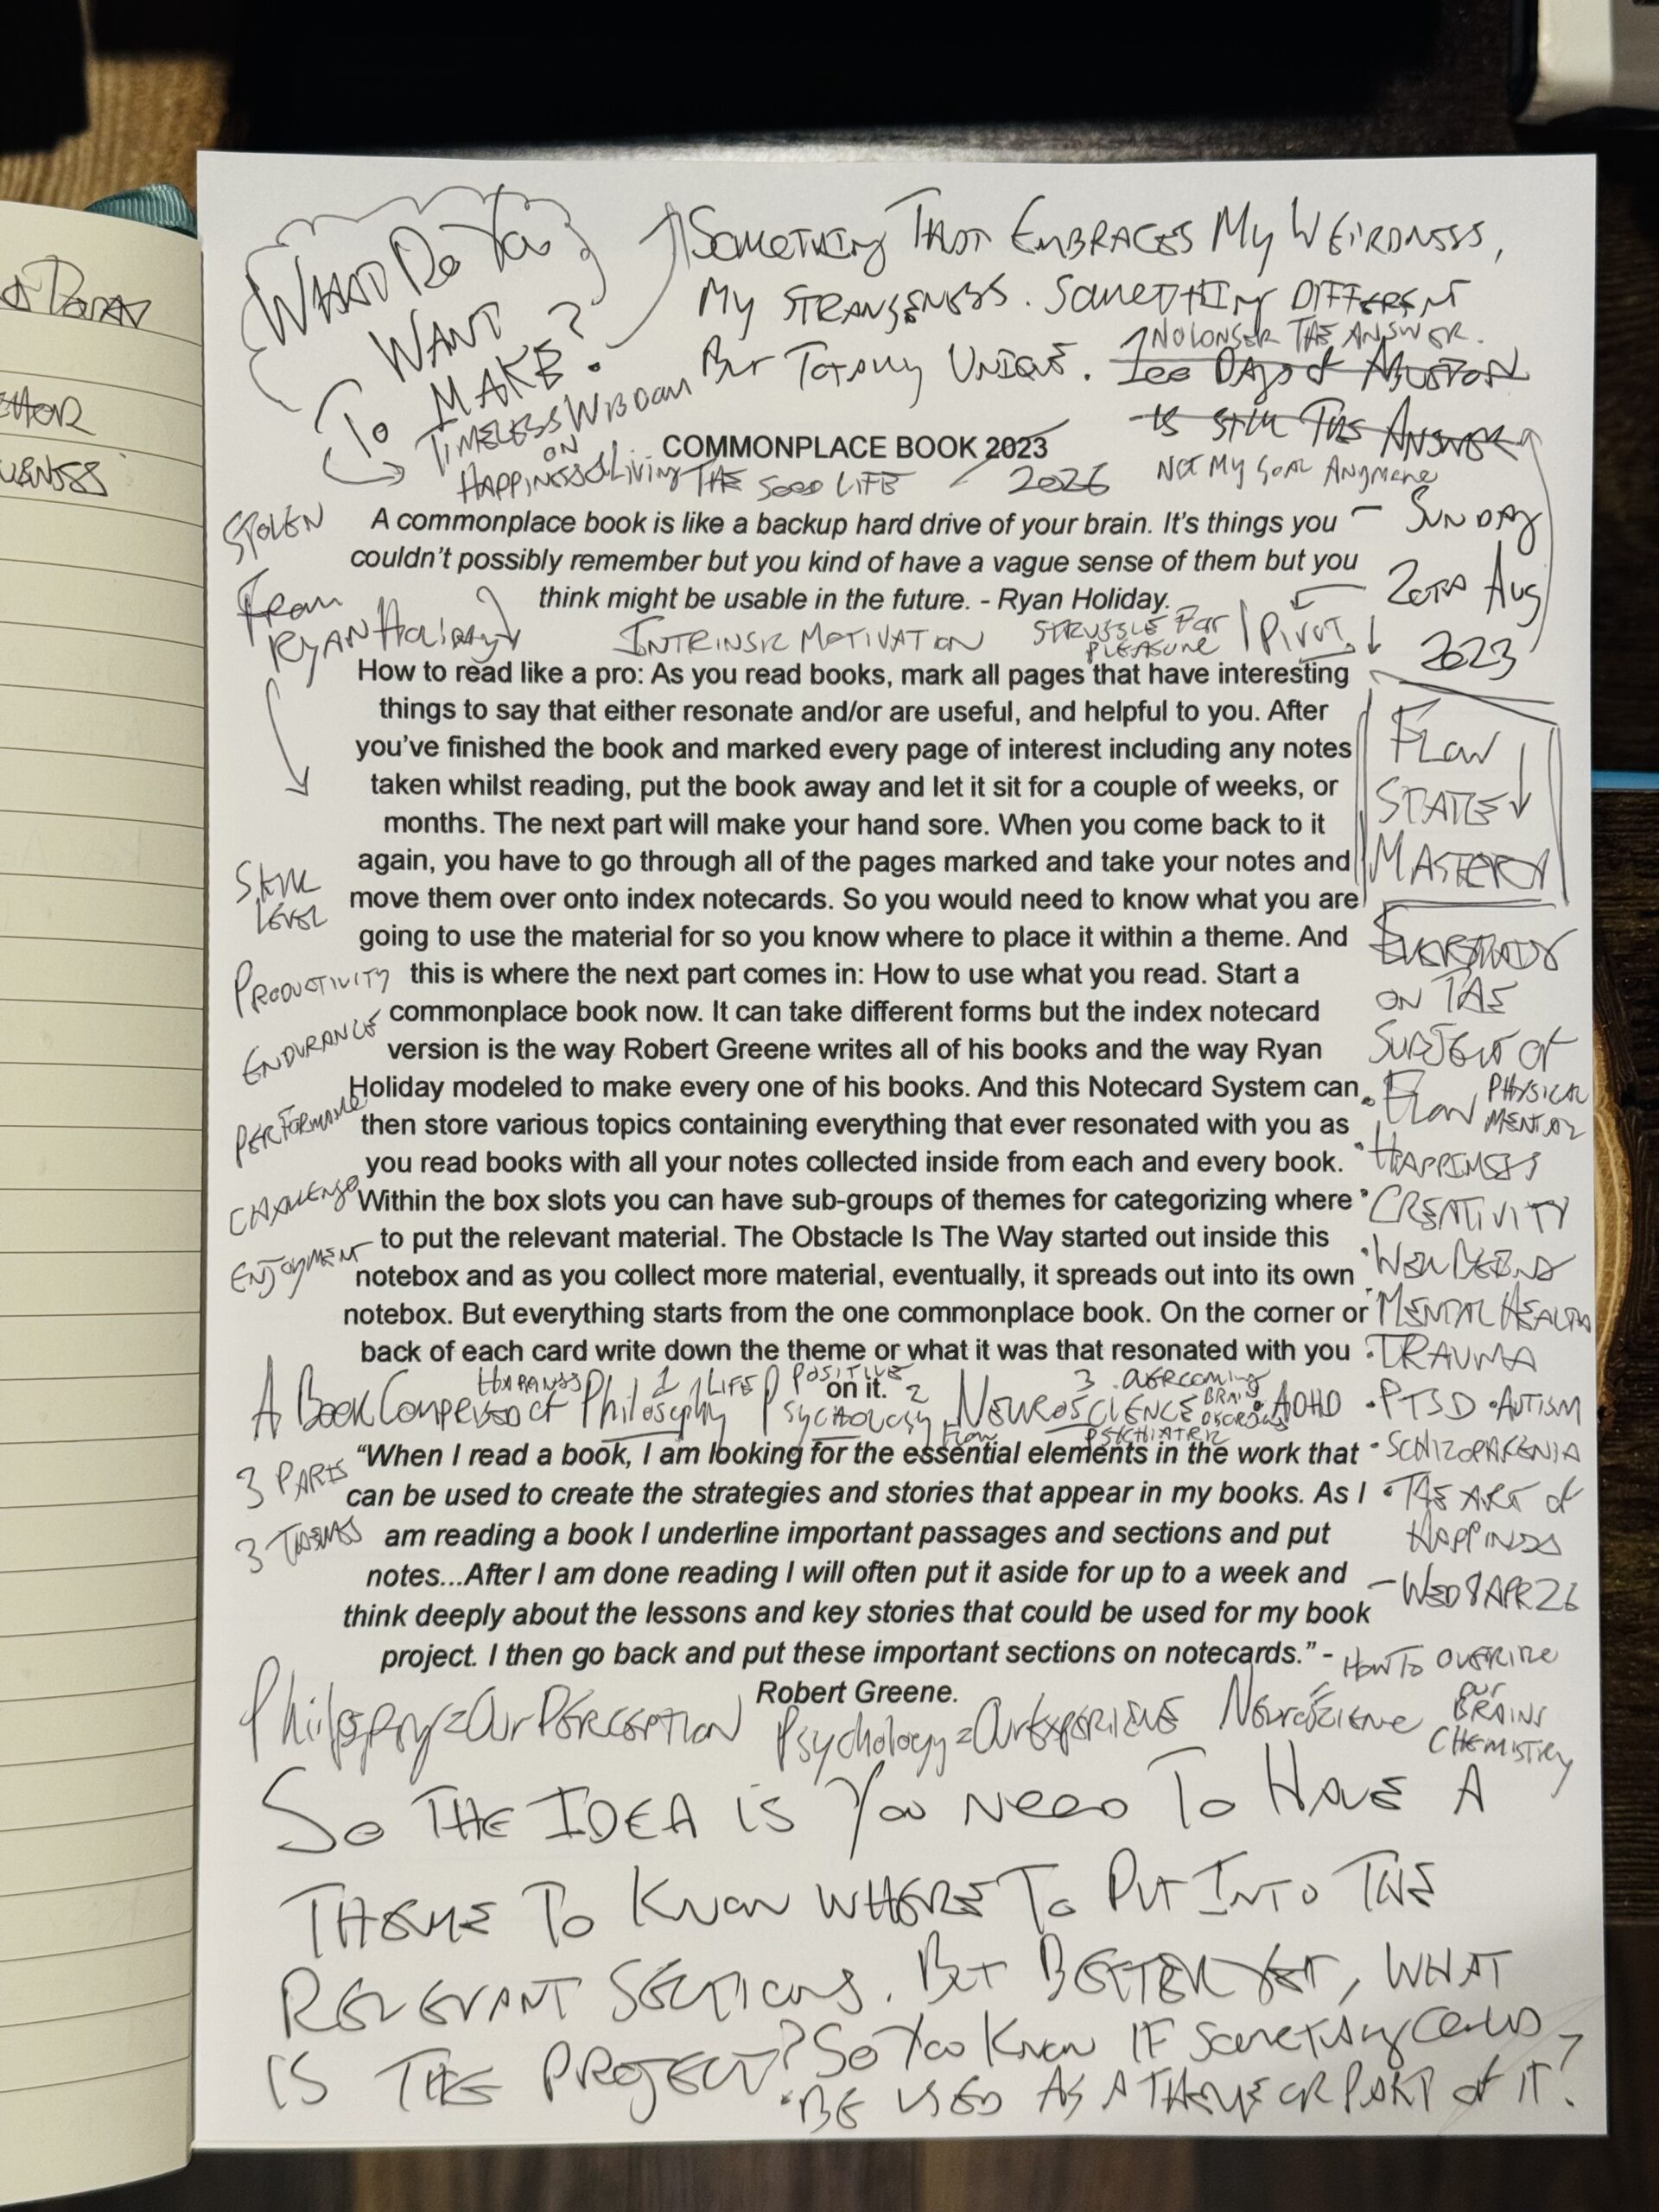 WHAT DO YOU
WANT
TO MAKE?
SOMETHING THAT EMBRACES MY WEIRDNESS,
MY STRANGENESS. SOMETHING DIFFERENT
BUT TOTALLY UNIQUE.
NO LONGER THE ANSWER.
100 DAYS of
IS STILL THE ANSWER
NOT MY GOAL ANYMORE
TIMELESS WISDOM
ON
HAPPINESS & Living THE GOOD LIFE
COMMONPLACE BOOK 2023
2026
STOLEN
FROM
RYAN Holiday
A commonplace book is like a backup hard drive of your brain. It's things you
couldn't possibly remember but you kind of have a vague sense of them but you
think might be usable in the future. - Ryan Holiday.
- SUNDAY
20TH Aug
2023
INTRINSIC MOTIVATION
STRUGGLE FOR
PLEASURE
PIVOT
How to read like a pro: As you read books, mark all pages that have interesting
things to say that either resonate and/or are useful, and helpful to you. After
you've finished the book and marked every page of interest including any notes
taken whilst reading, put the book away and let it sit for a couple of weeks, or
months. The next part will make your hand sore. When you come back to it
again, you have to go through all of the pages marked and take your notes and
move them over onto index notecards. So you would need to know what you are
going to use the material for so you know where to place it within a theme. And
this is where the next part comes in: How to use what you read. Start a
commonplace book now. It can take different forms but the index notecard
version is the way Robert Greene writes all of his books and the way Ryan
Holiday modeled to make every one of his books. And this Notecard System can
then store various topics containing everything that ever resonated with you as
you read books with all your notes collected inside from each and every book.
Within the box slots you can have sub-groups of themes for categorizing where
to put the relevant material. The Obstacle Is The Way started out inside this
notebox and as you collect more material, eventually, it spreads out into its own
notebox. But everything starts from the one commonplace book. On the corner or
back of each card write down the theme or what it was that resonated with you
on it.
SKILL
LEVEL
PRODUCTIVITY
ENDURANCE
PERFORMANCE
CHALLENGE
ENJOYMENT
FLOW
STATE
MASTERY
EVERYTHING
ON THE
SUBJECT OF
• FLOW PHYSICAL
MENTAL
• HAPPINESS
• CREATIVITY
• WELLBEING
• MENTAL HEALTH
• TRAUMA
• ADHD • PTSD • AUTISM
• SCHIZOPHRENIA
• THE ART of
HAPPINESS
- WED 8 APR 26
A BOOK COMPRISED OF Philosophy Psychology NEUROSCIENCE
HAPPINESS 1 LIFE POSITIVE 2 3 OVERCOMING
BRAIN
DISORDERS
FLOW PSYCHIATRIC
3 PARTS
3 THEMES
"When I read a book, I am looking for the essential elements in the work that
can be used to create the strategies and stories that appear in my books. As I
am reading a book I underline important passages and sections and put
notes...After I am done reading I will often put it aside for up to a week and
think deeply about the lessons and key stories that could be used for my book
project. I then go back and put these important sections on notecards." -
Robert Greene.
Philosophy = Our PERCEPTION
Psychology = Our EXPERIENCE
NEUROSCIENCE = HOW TO OVERRIDE
OUR
BRAINS
CHEMISTRY
SO THE IDEA IS YOU NEED TO HAVE A
THEME TO KNOW WHERE TO PUT INTO THE
RELEVANT SECTIONS. BUT BETTER YET, WHAT
IS THE PROJECT? SO YOU KNOW IF SOMETHING COULD
BE USED AS A THEME OR PART of IT?